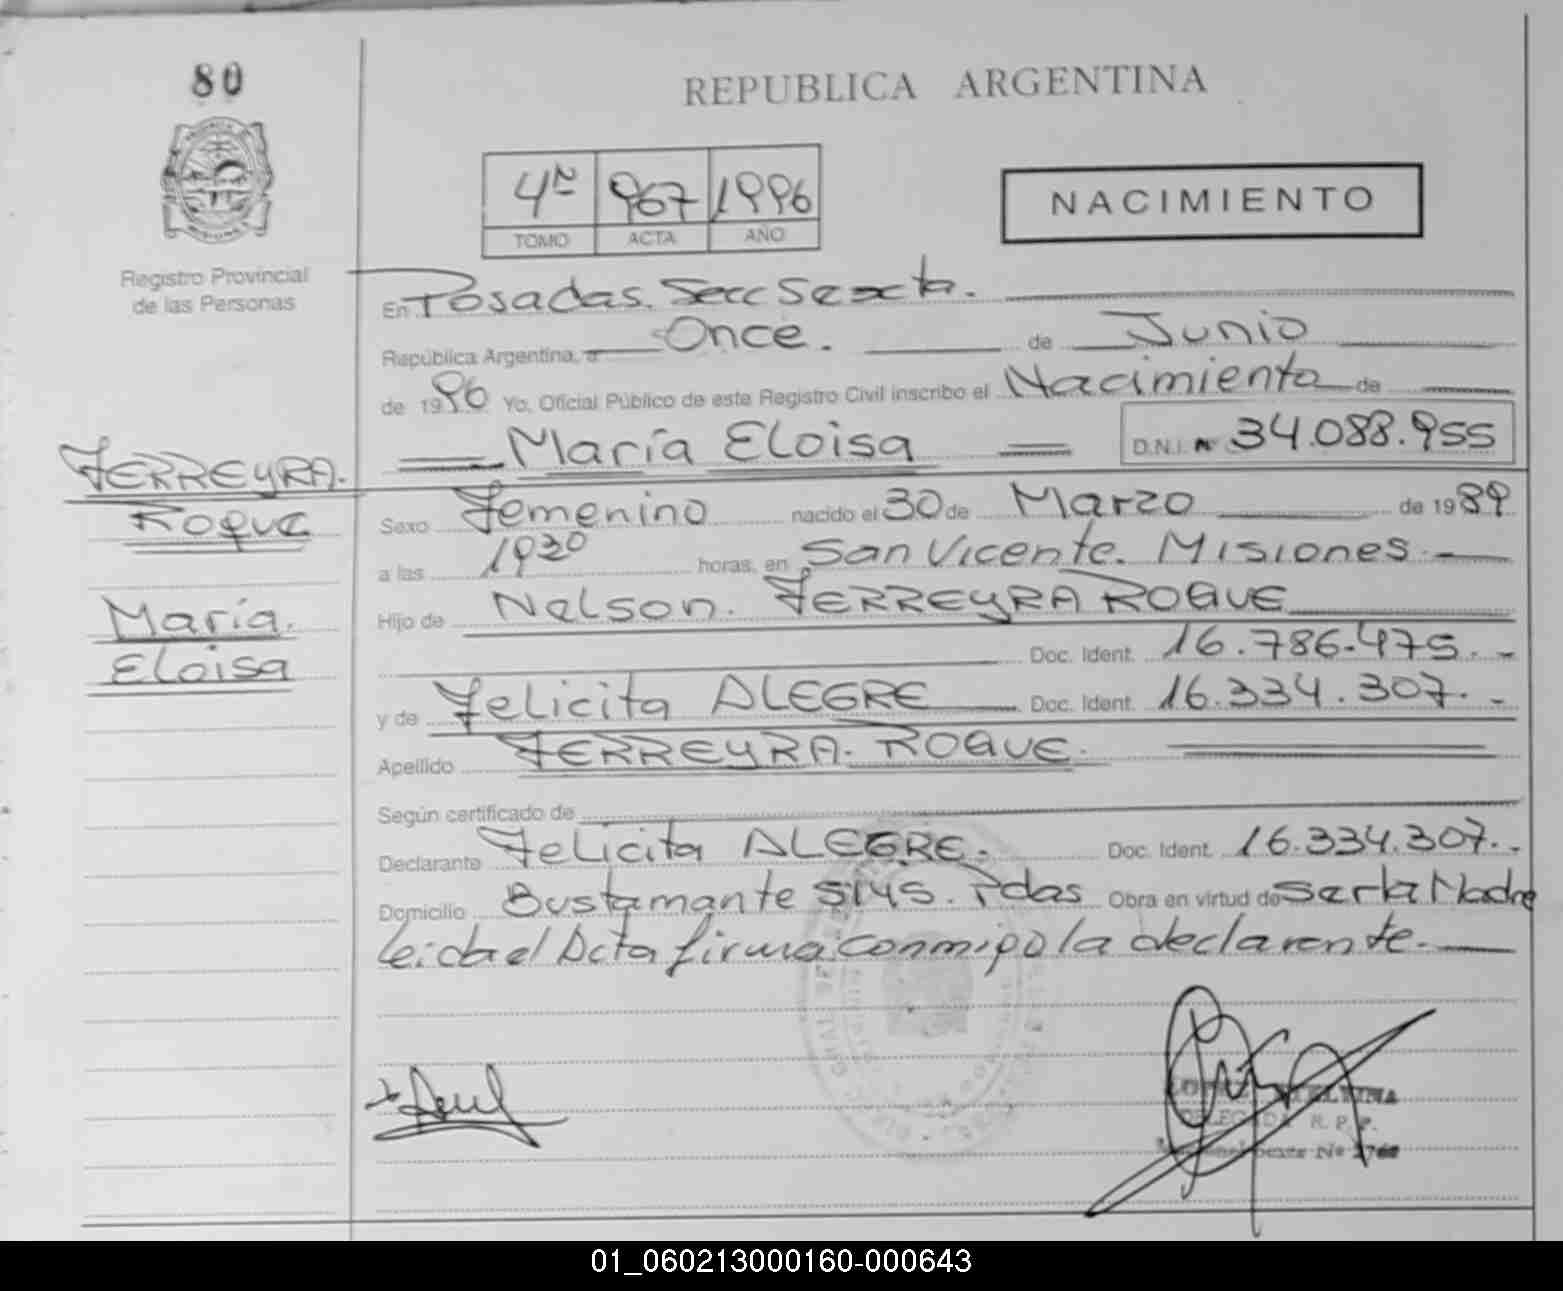 80
REPUBLICA ARGENTINA
4º 967 1996
TOMO ACTA AÑO
NACIMIENTO
Registro Provincial
de las Personas
En Posadas. Secc Sexta.
República Argentina, a Once. de Junio
de 1996 Yo, Oficial Público de este Registro Civil inscribo el Nacimiento de
María Eloisa D.N.I. Nº 34.088.955
FERREYRA.
ROQUE
María.
Eloisa
Sexo Femenino nacido el 30 de Marzo de 1989
a las 1930 horas, en San Vicente. Misiones.
Hijo de Nelson. FERREYRA ROQUE
Doc. Ident. 16.786.475.
y de Felicita ALEGRE Doc. Ident. 16.334.307.
Apellido FERREYRA. ROQUE.
Según certificado de
Declarante Felicita ALEGRE. Doc. Ident. 16.334.307.
Domicilio Bustamante 5145. Pdas Obra en virtud de Ser la Madre
Leida el Acta firma conmigo la declarante.
DELEGADA R. P. P.
01_060213000160-000643